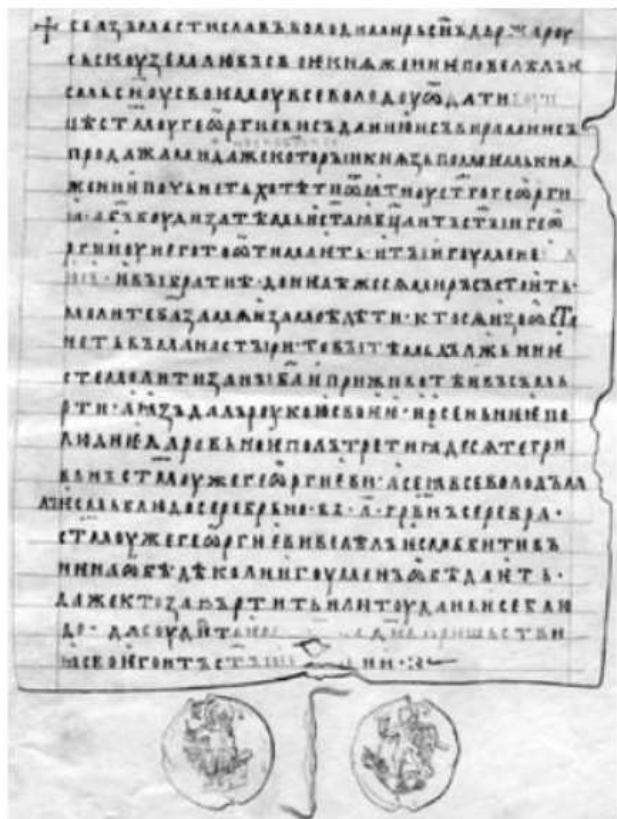 + се азъ мьстиславъ володимирь с҃нъ дьржа роу
сьскоу землю въ своѥ кнѧжениѥ повелѣлъ ѥ
смь с҃ноу своѥмоу всеволодоу ѿдати
цѣ с҃тмоу геѡргиеви съ даниѭ и съ вирами и съ
продажами даже которыи кнѧзь по моѥмь кнѧ
жении почьнеть хотѣти ѿѧти оу с҃тго геѡрги
ꙗ · а б҃ъ боуди за тѣмь и с҃таꙗ б҃ца и тъ с҃тыи геѡ
ргии оу него то ѿимаѥть · и ты игоумене
и вы братиѣ · донелѣже сѧ миръ състоить ·
молите б҃а за мѧ и за моѣ дѣти · кто сѧ изоѡста
неть въ манастыри · то вы тѣмь дължьни ѥ
сте молити за ны б҃а и при животѣ и въ съмь
рти · а ꙗзъ далъ роукою своѥю · и осеньнѥѥ по
людиѥ даровьноѥ полътретиꙗдесѧте гри
вьнъ с҃тмоу же геѡргиеви · а се ꙗ всеволодъ да
лъ ѥсмь блюдо серебрьно · въ · л҃ · грвн҃ъ серебра ·
с҃тмоу же геѡргиеви велѣлъ ѥсмь бити въ
нѥ на ѡбѣдѣ коли игоуменъ ѡбѣдаѥть ·
даже кто запъртить или тоу дань и се блю
до · да соудить пришьстви
ꙗ своѥго и тъ с҃тыи